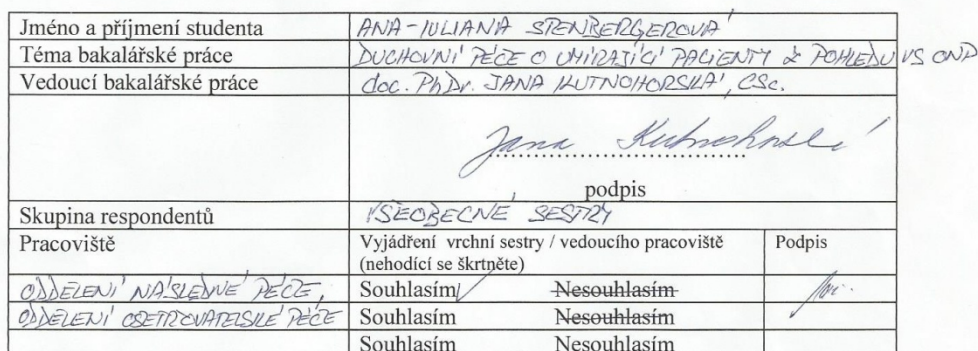 Jméno a příjmení studenta ANA-IULIANA STENBERGEROVÁ
Téma bakalářské práce DUCHOVNÍ PÉČE O UMÍRAJÍCÍ PACIENTY Z POHLEDU VS ONP
Vedoucí bakalářské práce doc. PhDr. JANA KUTNOHORSKÁ, CSc.
Jana Kutnohorská
podpis
Skupina respondentů VŠEOBECNÉ SESTRY
Pracoviště Vyjádření vrchní sestry / vedoucího pracoviště Podpis
(nehodící se škrtněte)
ODDĚLENÍ NÁSLEDNÉ PÉČE, Souhlasím Nesouhlasím
ODDĚLENÍ OŠETŘOVATELSKÉ PÉČE Souhlasím Nesouhlasím
Souhlasím Nesouhlasím